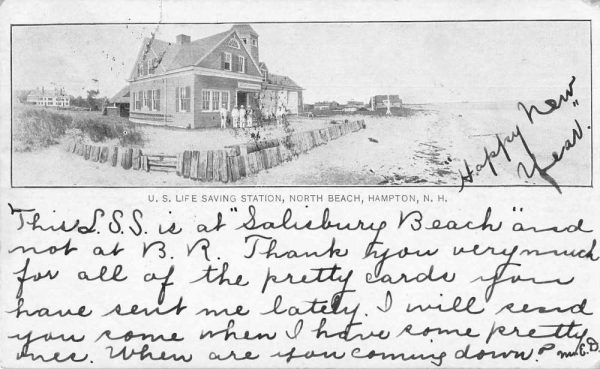 "Happy New
Year."
U. S. LIFE SAVING STATION, NORTH BEACH, HAMPTON, N. H.
This L.S.S. is at "Salisbury Beach" and
not at B. R. Thank you very much
for all of the pretty cards you
have sent me lately. I will send
you some when I have some pretty
ones. When are you coming down?
E. D.